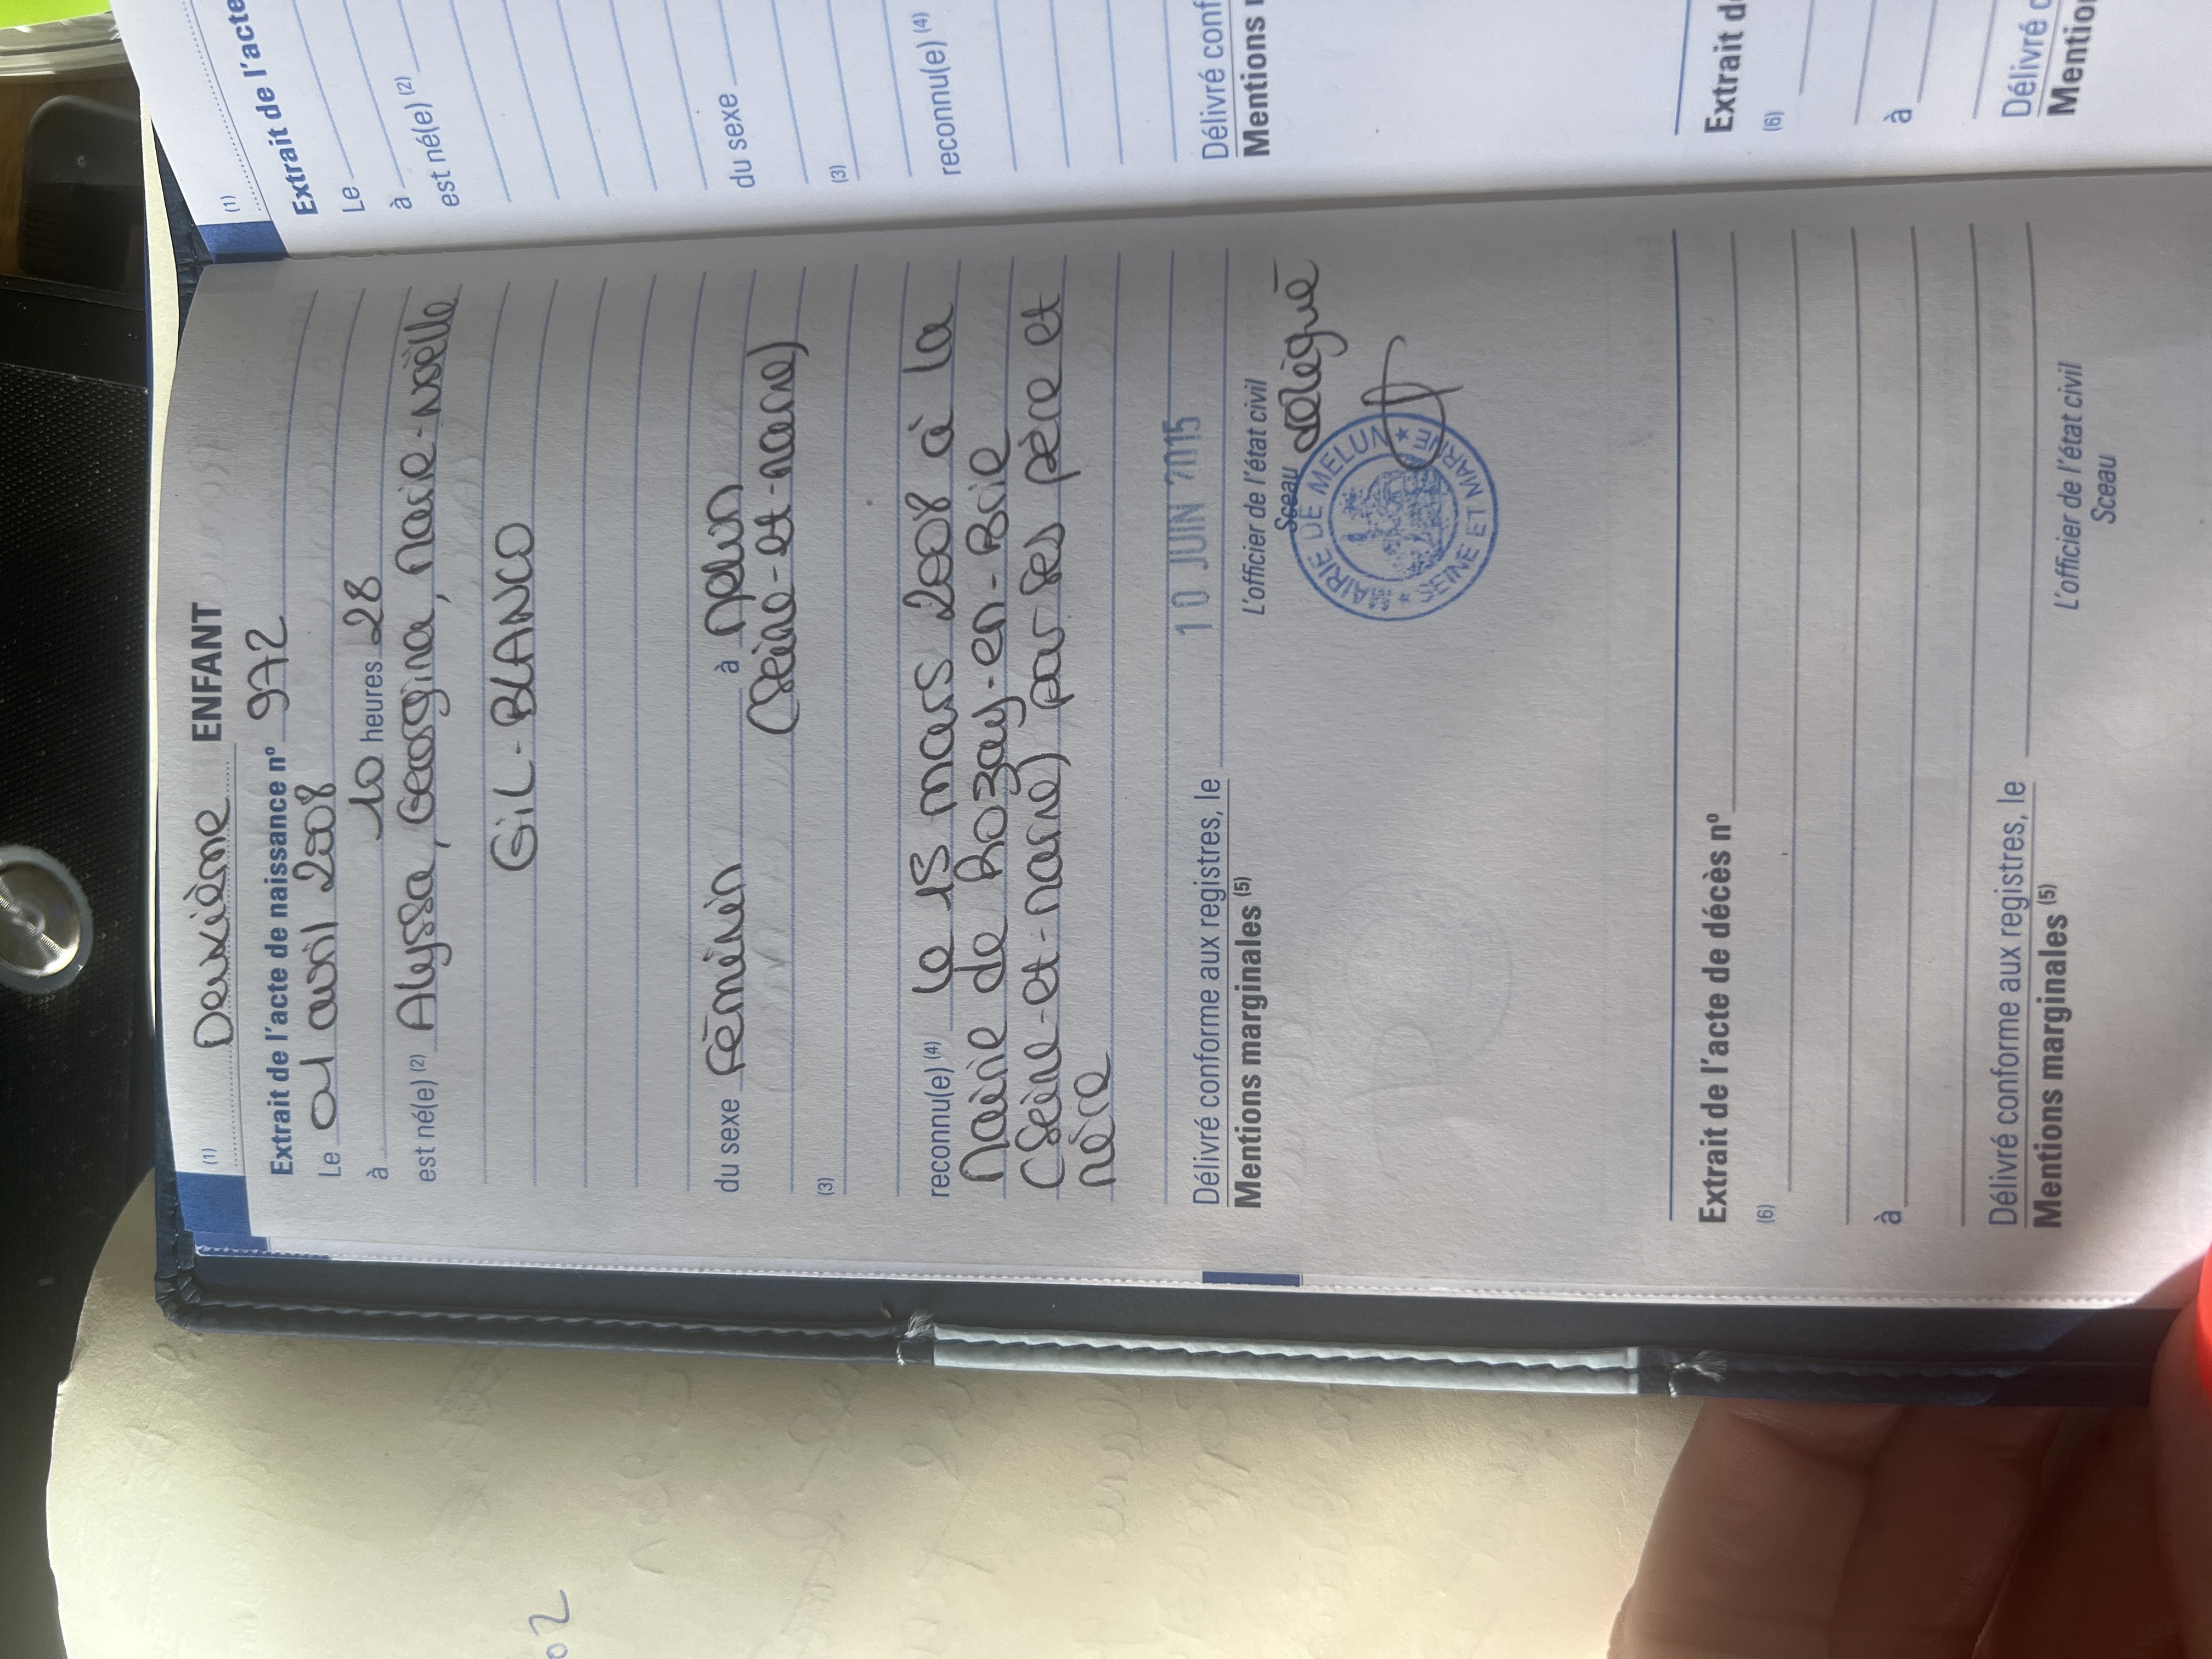 (1) Deuxième ENFANT
Extrait de l'acte de naissance nº 972
Le 01 avril 2008
à 10 heures 28
est né(e) (2) Alyssa, Georgina, Marie-Noëlle
GIL-BLANCO
du sexe Féminin à Melun
(Seine-et-Marne)
(3)
reconnu(e) (4) le 15 mars 2008 à la
Mairie de Rozay-en-Brie
(Seine-et-Marne) par ses père et
mère
Délivré conforme aux registres, le 10 JUIN 2015
Mentions marginales (5)
L'officier de l'état civil
Sceau délégué
MAIRIE DE MELUN
★ SEINE ET MARNE ★
Extrait de l'acte de décès nº
(6)
à
Délivré conforme aux registres, le
Mentions marginales (5)
L'officier de l'état civil
Sceau
(1)
Extrait de l'acte
Le
à
est né(e) (2)
du sexe
(3)
reconnu(e) (4)
Délivré conf
Mentions
Extrait de
(6)
à
Délivré
Mentio
02